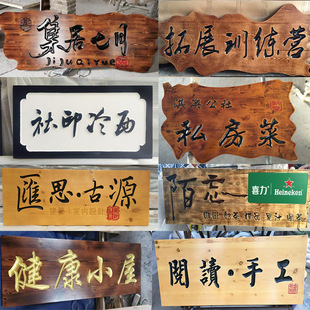 集居七月
jijuqiyue
拓展训练营
西泠印社
公社
私房菜
匯思·古源
喜力
Heineken
健康小屋
閱讀·手工